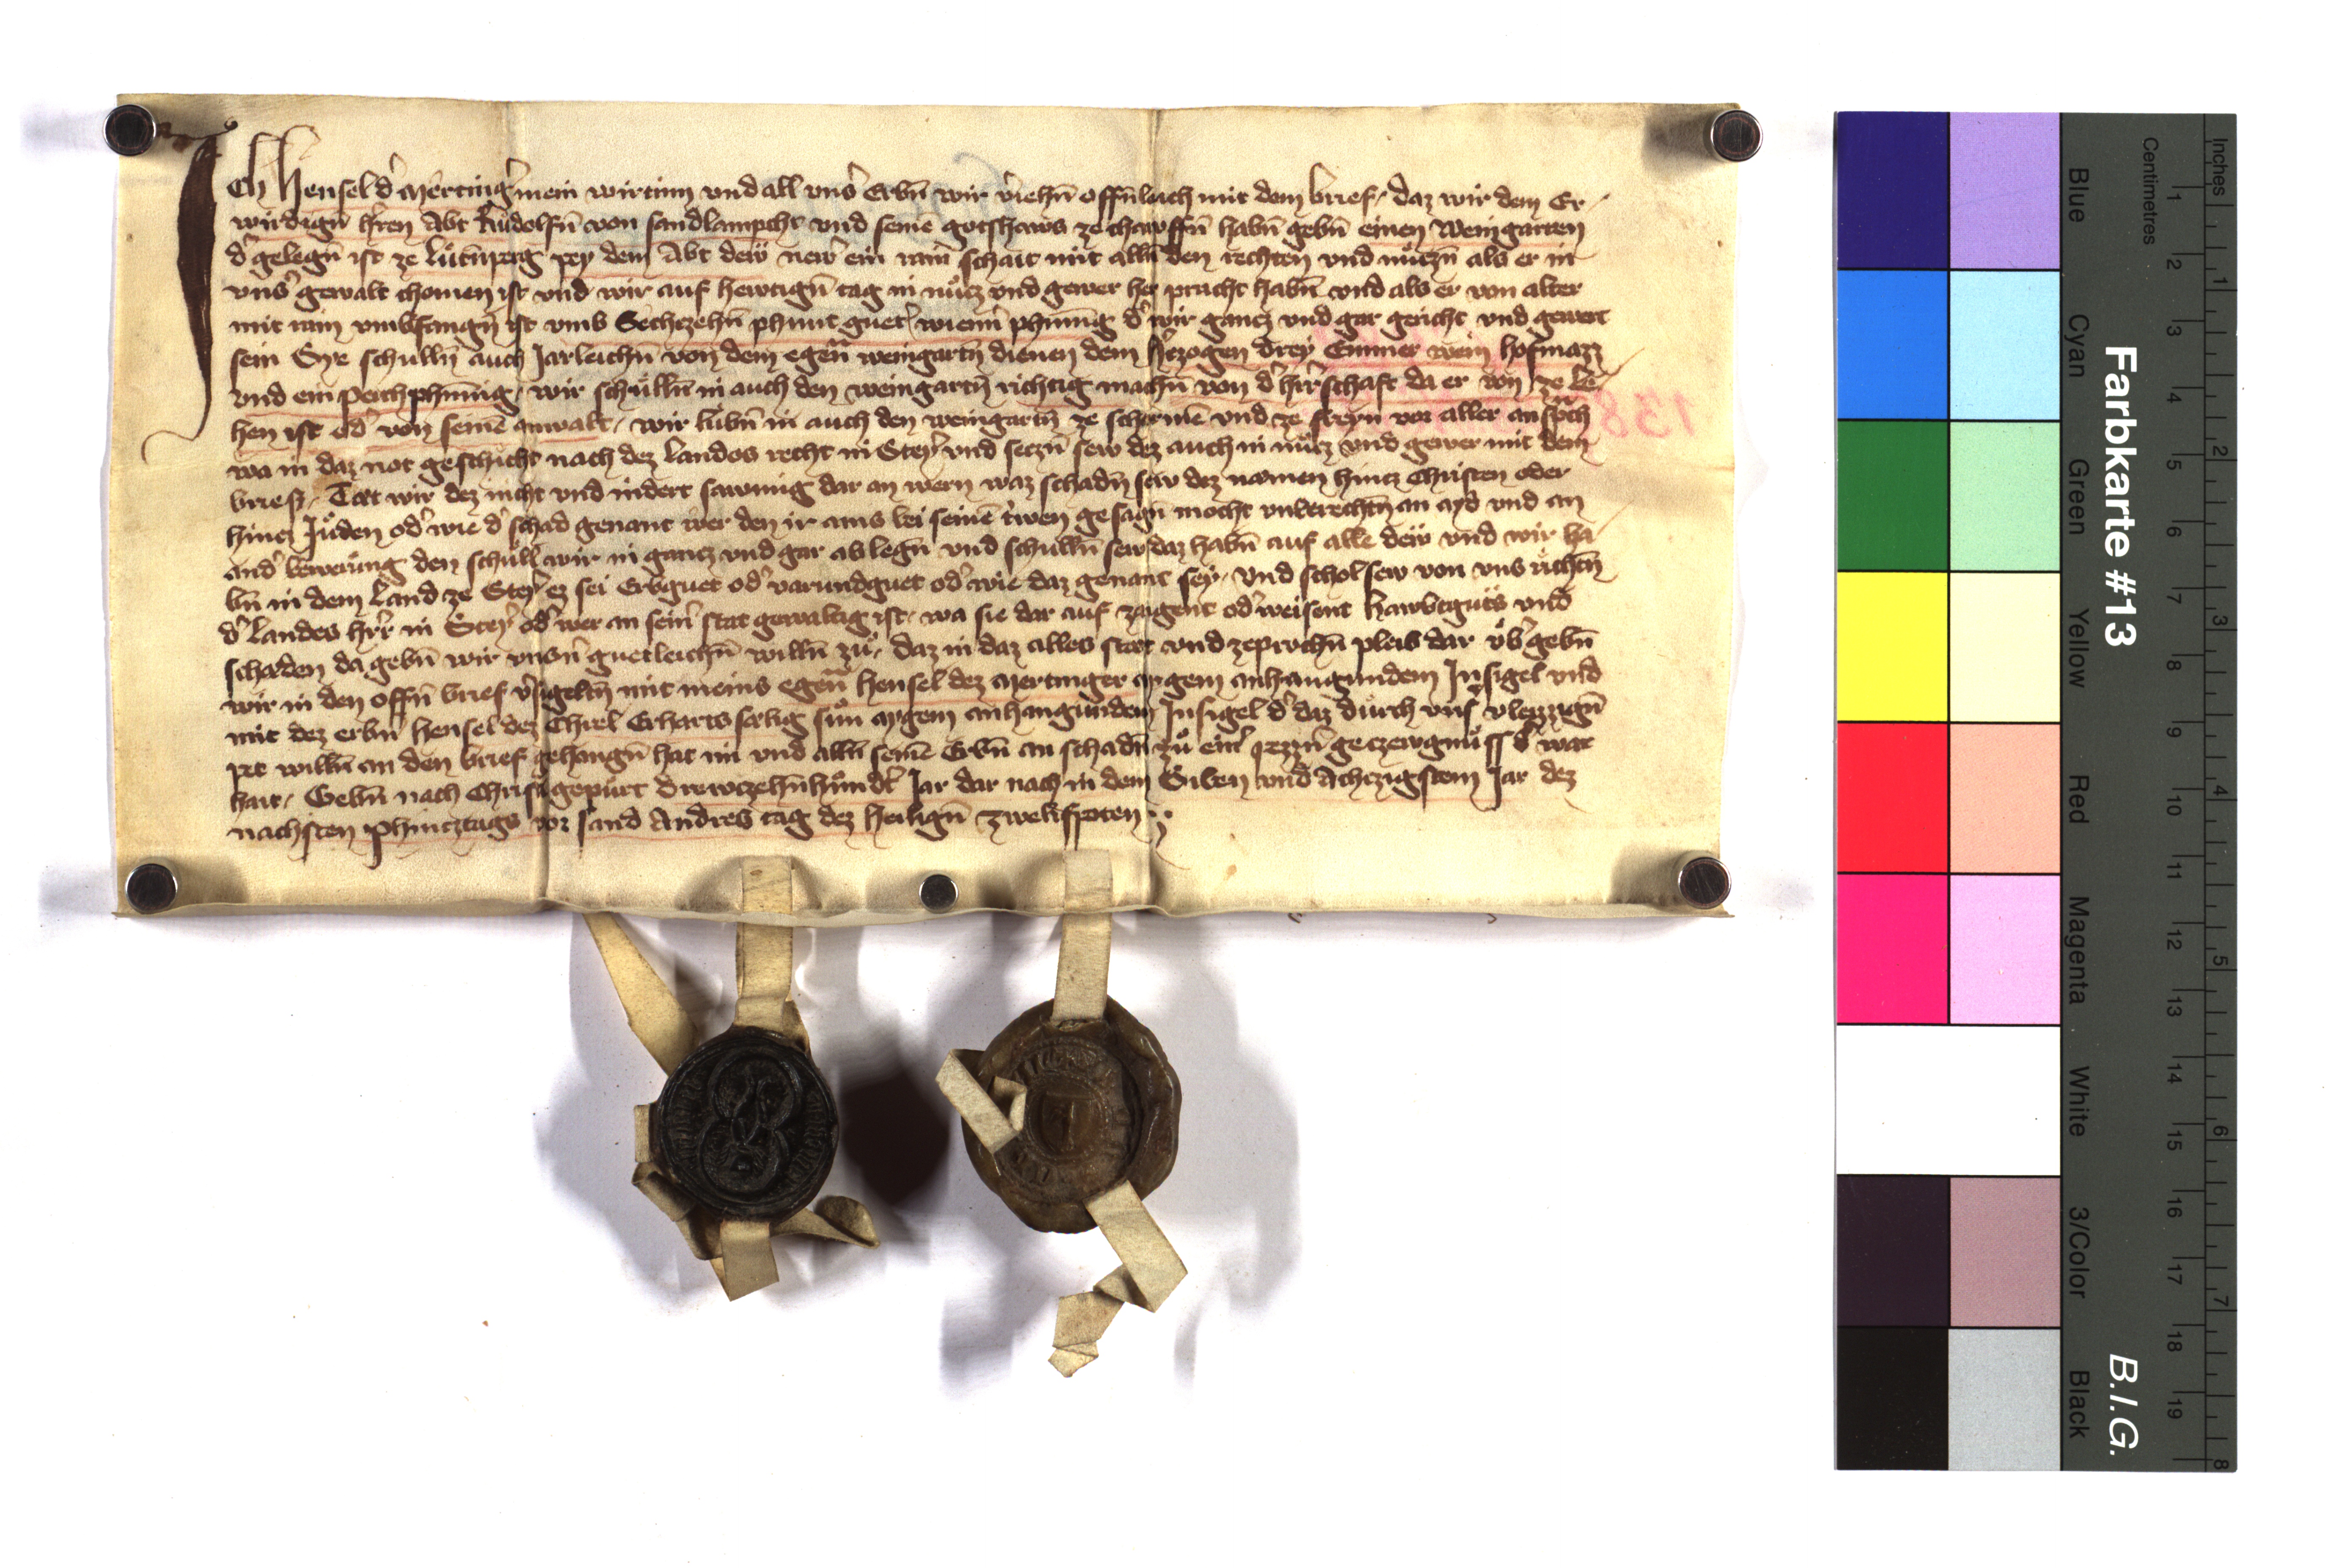 Ich Hensel d' Mertinger mein wirtinn vnd all vns' Erbn̄ wir v'iehn̄ offn̄leich mit dem brief, daz wir dem Er-
wirdign̄ h'ren Abt Rudolfn̄ von sand lampcht vnd seinē gotshaws ze chawffn̄ habn̄ gebn̄ einen Weingarten
d' gelegn̄ ist ze Lůtn̄perg pey dem Abt dew new' ein rain schait mit alln̄ den rechten vnd nůczn̄ als er in
vns' gewalt chomen ist vnd wir auf hewtign̄ tag in nůcz vnd gewer her pracht habn̄ vnd als er von alter
mit rain vmbfangn̄ ist vmb Sechczehn̄ phunt guet' wienn' phn̄nig d' wir gancz vnd gar gericht vnd gewert
sein Sye schulln̄ auch Jarleichn̄ von dem egen̄ weingartn̄ dienen dem h'czogen drey Emmer wein hofmazz
vnd ein perchphn̄nig, wir schulln̄ in auch den weingartn̄ richtig machn̄ von d' h'rschaft da er von ze le-
hen ist od' von seinē anwalt, wir lubn̄ in auch den weingartn̄ ze schermē vnd ze freyn vor aller an sp'ch
wa in daz not geschicht nach dez landes recht in Steyr vnd seczn̄ sew dez auch in nůcz vnd gewer mit dem
brief, Tæt wir dez nicht vnd indert sawmig dar an wern waz schadn̄ sew dez næmen hincz Christen oder
hincz Juden od' wie d' schad genant wer den ir ains bei seinē trwen gesagn̄ mocht vnberechtn̄ an ayd vnd an
and' bewerung den schull wir in gancz vnd gar ablegn̄ vnd schulln̄ sew daz habn̄ auf alle dew vnd wir ha
bn̄ in dem Land ze Steyr ez sei Erbguet od' varundguet od' wie daz genant sey, vnd schol sew von vns richtn̄
d' landes h'rr in Steyr od' wer an sein' stat gewaltig ist, wa sie dar auf zaigent od' weisent hawbtguts vnd
schaden da gebn̄ wir vnsn̄ guetleichn̄ willn̄ zů, daz in daz alles stæt vnd zeprochn̄ pleib dar vb' gebn̄
wir in den offn̄ brief v'sigeltn̄ mit meins egen̄ Hensel dez Mertinger aygem anhangundem Insigel vnd
mit dez erbn̄ Hensel dez Chrel Erharts sælig sun aygem anhangundem Insigel d' daz durch vns' vleizzign̄
pet willn̄ an den brief gehangn̄ hat im vnd alln̄ seinē Erbn̄ an schadn̄ zů ein' gezewgnuss d' war
hait, Gebn̄ nach Christ gepurt Drewczehn̄hund't Jar dar nach in dem Siben vnd Achzigstem Jar dez
nachsten Phincztags vor sand Andres tag dez heilign̄ zwelfpoten
Farbkarte #13
B.I.G.
Centimetres
Inches
Blue
Cyan
Green
Yellow
Red
Magenta
White
3/Color
Black
1
2
3
4
5
6
7
8
9
10
11
12
13
14
15
16
17
18
19
1
2
3
4
5
6
7
8